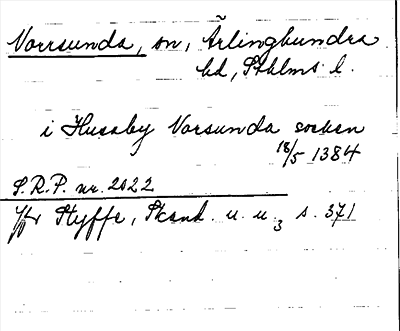 Vorrsunda, sn, Ärlinghundra
hd, Sthlms l.
i Husaby Vorsunda socken
18/5 1384
S.R.P. nr. 2022
Jfr Styffe, Skand. u. u.3 s. 371